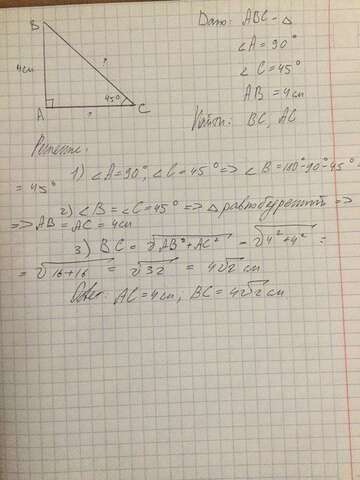 B
4см
?
A
45°
C
?
Дано: ABC - Δ
∠A = 90°
∠C = 45°
AB = 4см
Найти: BC, AC
Решение:
1) ∠A = 90°, ∠C = 45° => ∠B = 180°-90°-45°
= 45°
2) ∠B = ∠C = 45° => Δ равнобедренный =>
=> AB = AC = 4см
3) BC = √AB²+AC² = √4²+4² =
= √16+16 = √32 = 4√2 см
Ответ: AC = 4см, BC = 4√2 см